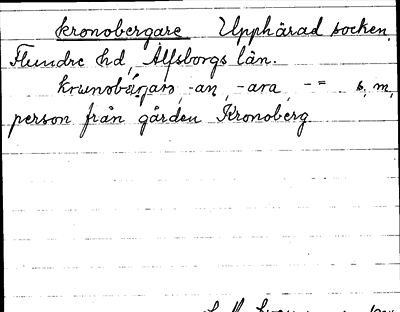 kronobergare Upphärad socken,
Flundre hd, Älfsborgs län.
-an, -ara, -= s, m,
person från gården Kronoberg.